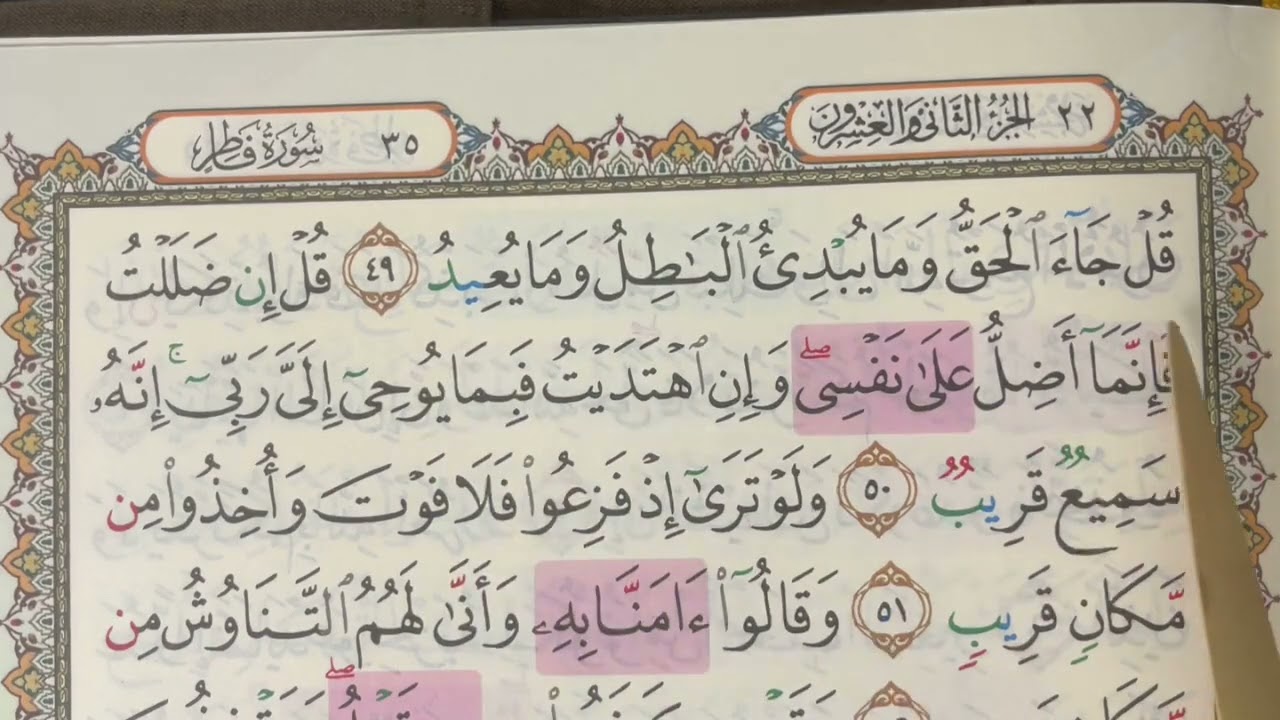 ٢٢ الجزء الثاني والعشرون
سورة فاطر ٣٥
قُلۡ جَآءَ ٱلۡحَقُّ وَمَا يُبۡدِئُ ٱلۡبَٰطِلُ وَمَا يُعِيدُ ٤٩ قُلۡ إِن ضَلَلۡتُ
فَإِنَّمَآ أَضِلُّ عَلَىٰ نَفۡسِيۖ وَإِنِ ٱهۡتَدَيۡتُ فَبِمَا يُوحِيٓ إِلَيَّ رَبِّيٓۚ إِنَّهُۥ
سَمِيعٞ قَرِيبٞ ٥٠ وَلَوۡ تَرَىٰٓ إِذۡ فَزِعُواْ فَلَا فَوۡتَ وَأُخِذُواْ مِن
مَّكَانٖ قَرِيبٖ ٥١ وَقَالُوٓاْ ءَامَنَّا بِهِۦ وَأَنَّىٰ لَهُمُ ٱلتَّنَاوُشُ مِن